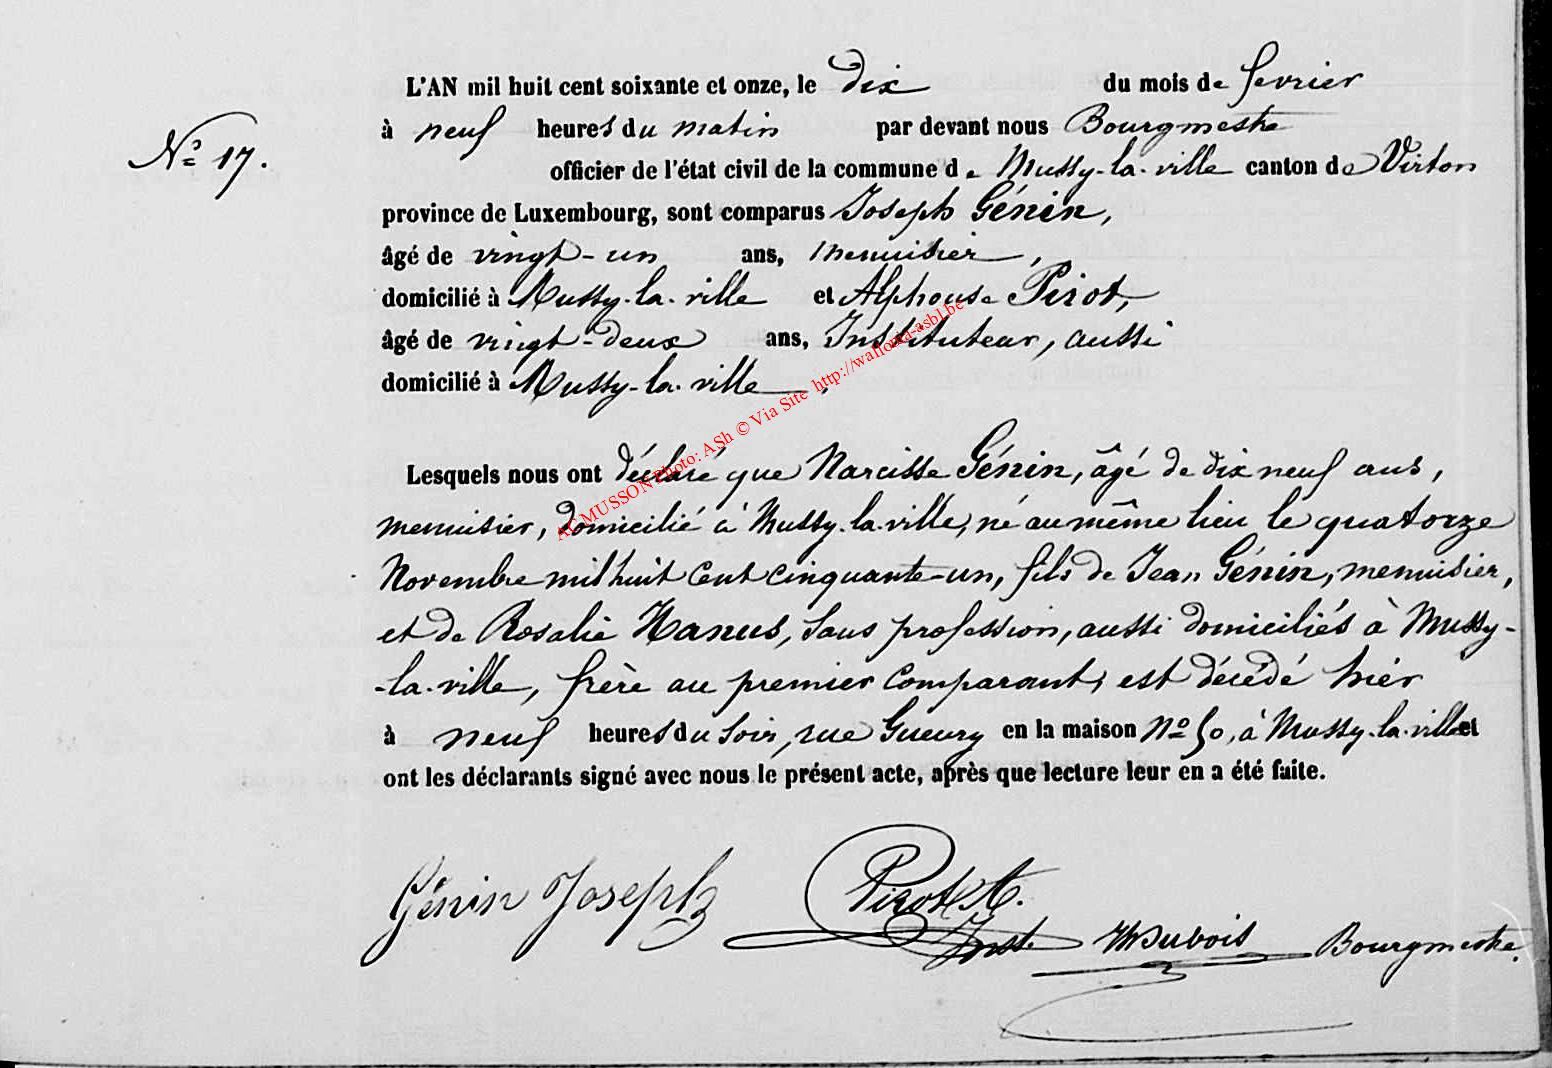 L'AN mil huit cent soixante et onze, le dix du mois de fevrier
à neuf heures du matin par devant nous Bourgmestre
Nº 17.
officier de l'état civil de la commune de Mussy-la-ville canton de Virton
province de Luxembourg, sont comparus Joseph Génin,
âgé de vingt-un ans, menuisier,
domicilié à Mussy-la-ville et Alphonse Pirot,
âgé de vingt-deux ans, Instituteur, aussi
domicilié à Mussy-la-ville.
AC MUSSON Photo: ASh © Via Site http://wallonia-asbl.be
Lesquels nous ont déclaré que Narcisse Génin, âgé de dix neuf ans,
menuisier, domicilié à Mussy-la-ville, né au même lieu le quatorze
Novembre mil huit cent cinquante-un, fils de Jean Génin, menuisier,
et de Rosalie Hanus, sans profession, aussi domiciliés à Mussy-
-la-ville, frère au premier comparant, est décédé hier
à neuf heures du soir, rue Gueury en la maison Nº 50, à Mussy-la-ville et
ont les déclarants signé avec nous le présent acte, après que lecture leur en a été faite.
Génin Joseph
Pirot A.
Inst.
Dubois Bourgmestre.